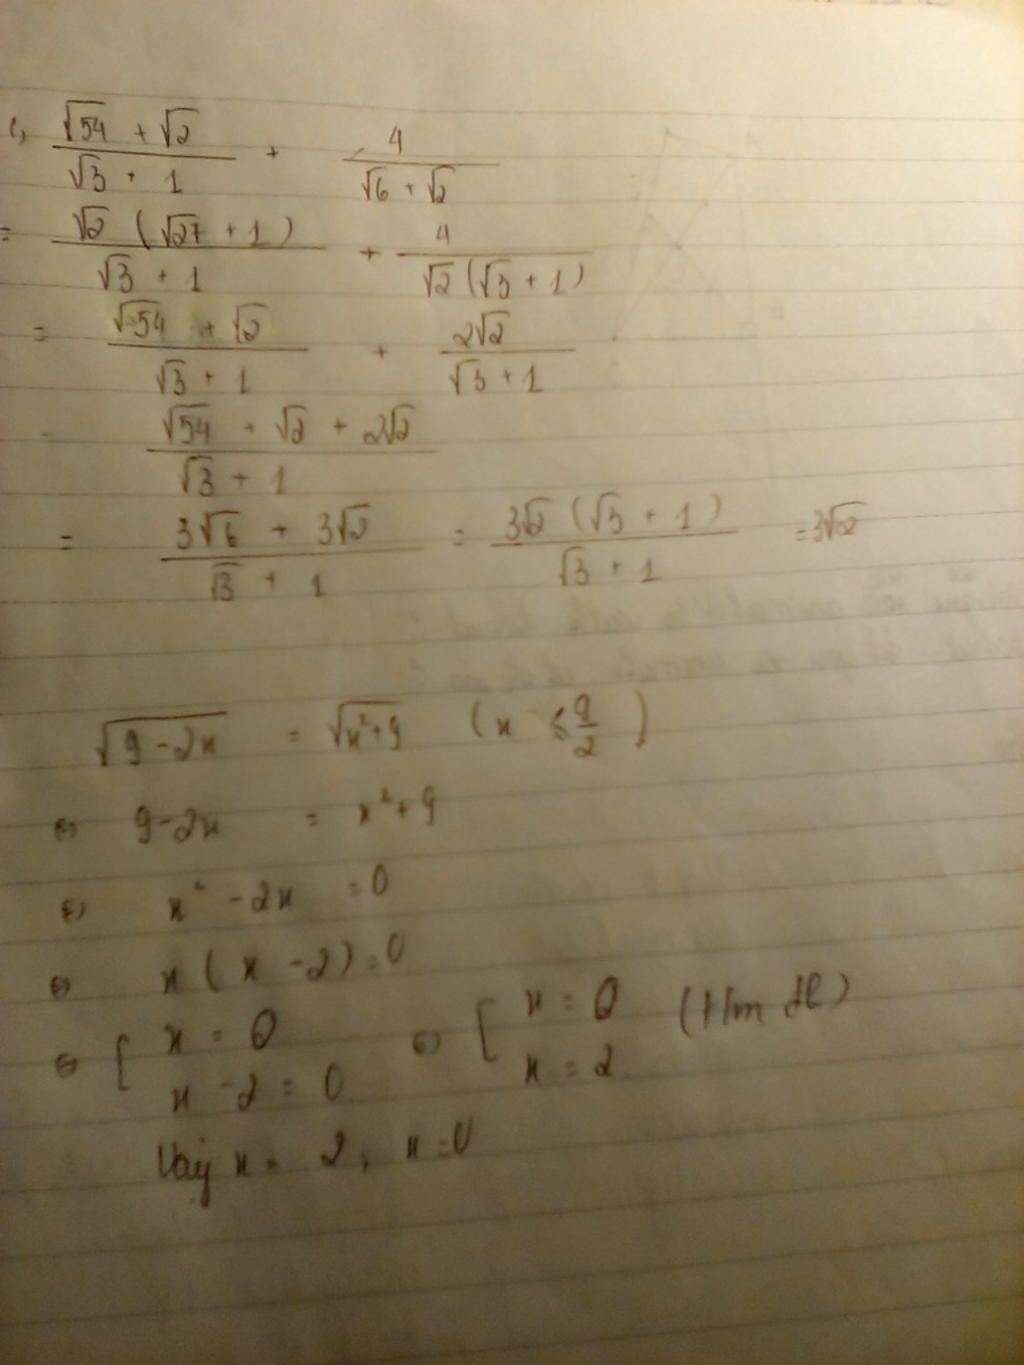 c, (√54 + √2)/(√3 + 1) + 4/(√6 + √2)
= √2 (√27 + 1)/(√3 + 1) + 4/(√2 (√3 + 1))
= (√54 + √2)/(√3 + 1) + 2√2/(√3 + 1)
(√54 + √2 + 2√2)/(√3 + 1)
= (3√6 + 3√2)/(√3 + 1) = 3√2 (√3 + 1)/(√3 + 1) = 3√2
√(9 - 2x) = √(x² + 9) (x ≤ 9/2)
⇔ 9 - 2x = x² + 9
⇔ x² - 2x = 0
⇔ x (x - 2) = 0
⇔ [ x = 0 ⇔ [ x = 0 (t/m đk)
x - 2 = 0 x = 2
Vậy x = 2, x = 0